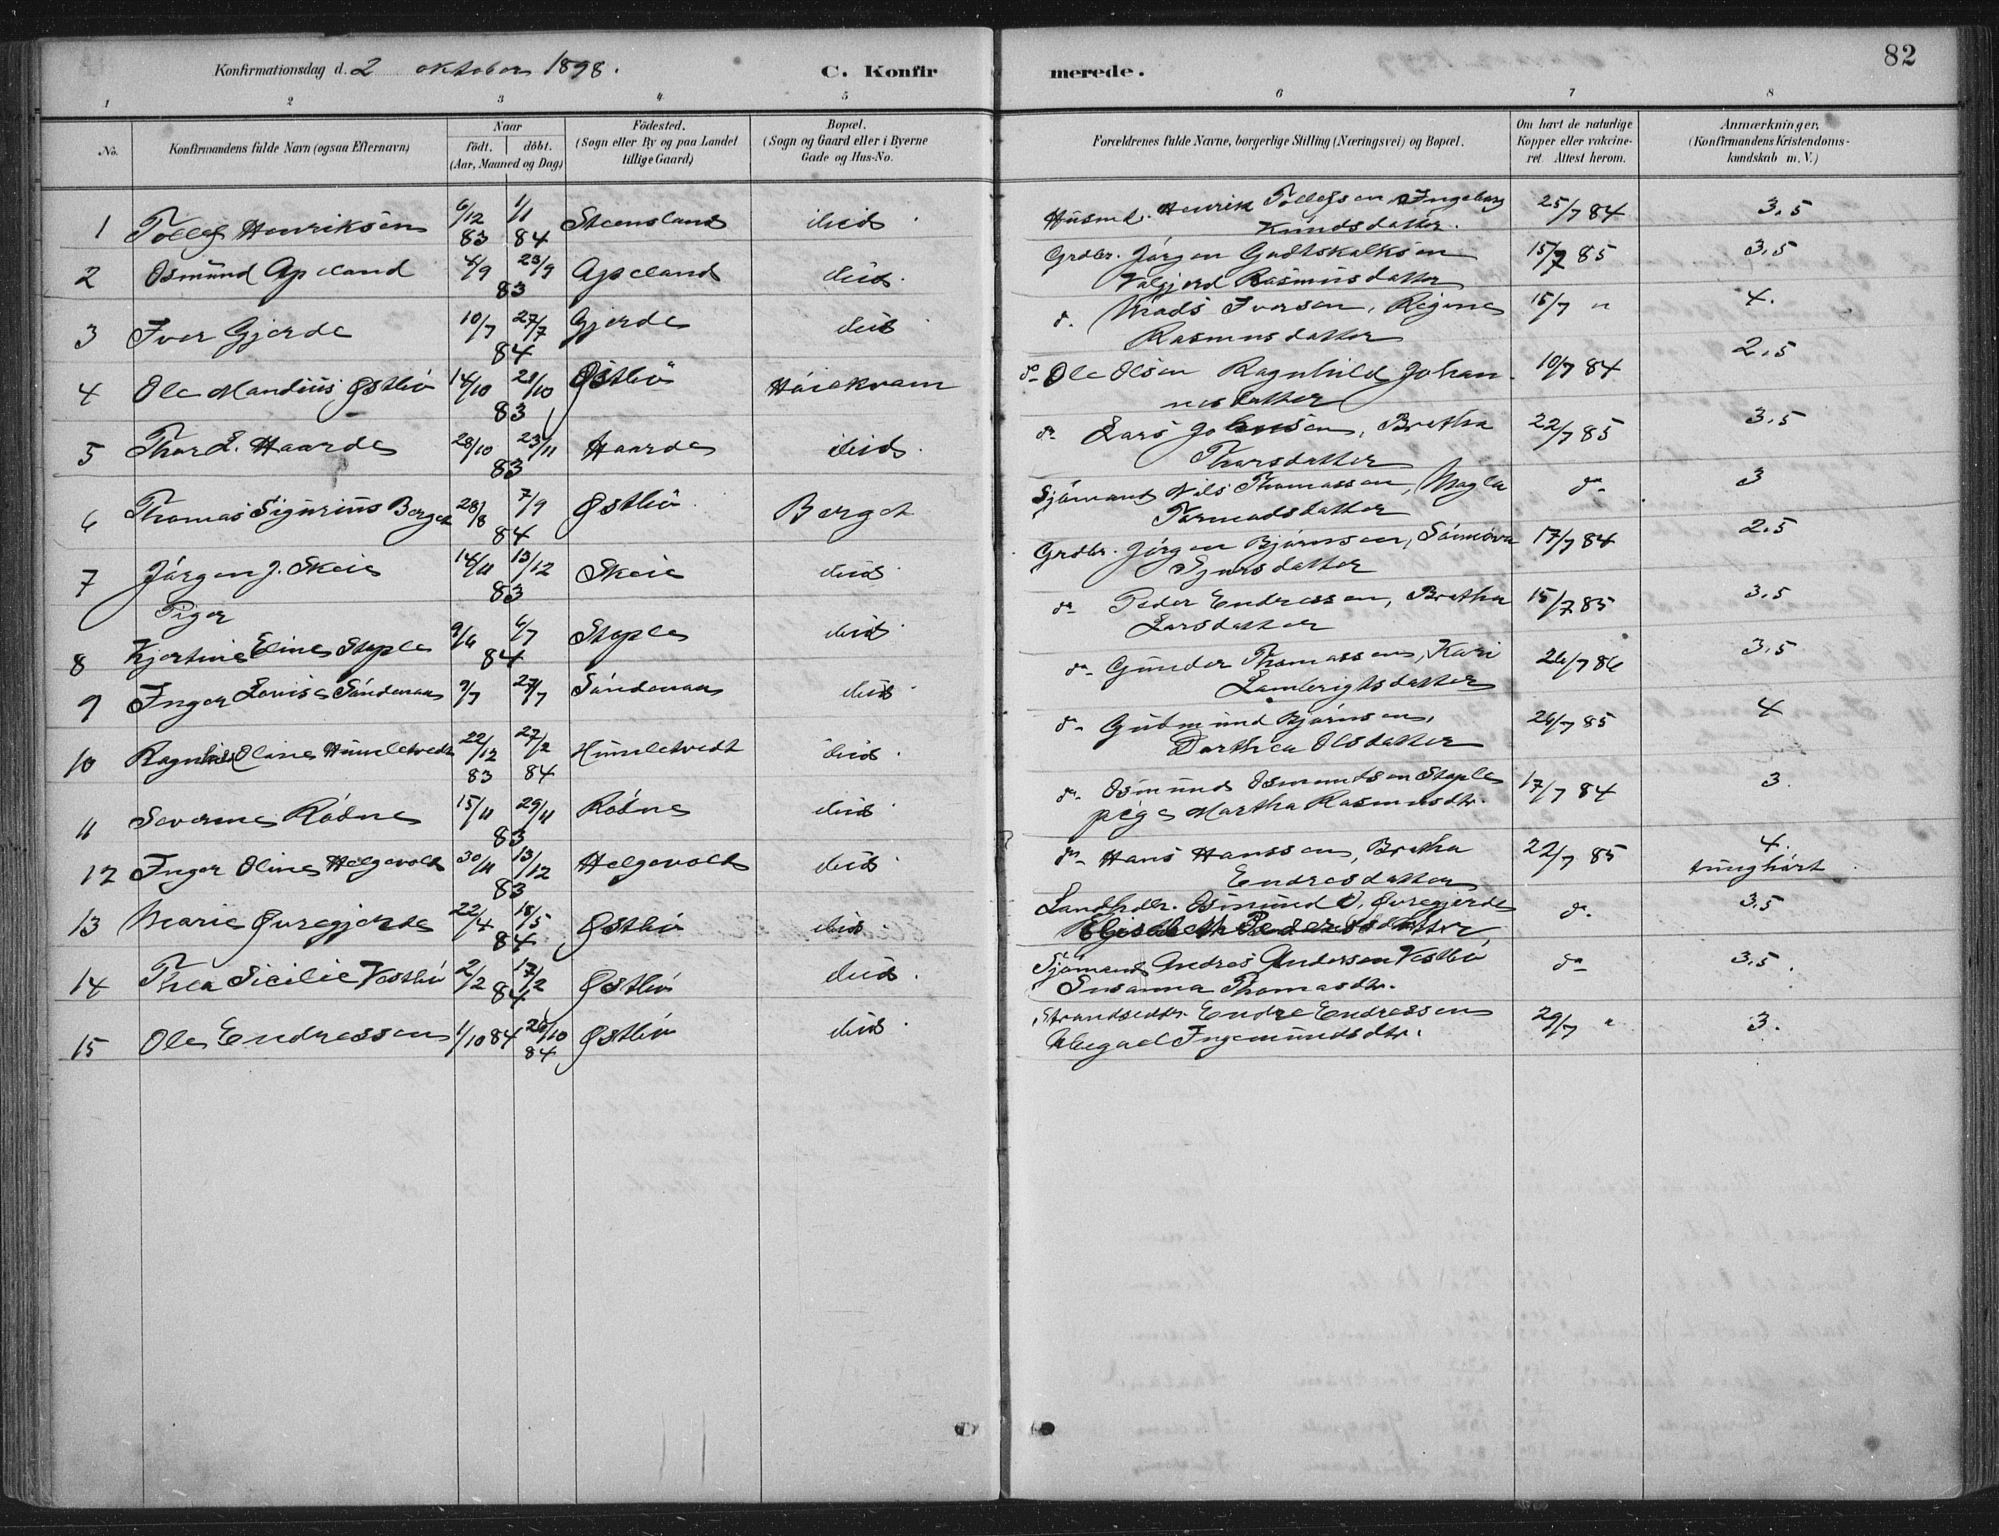 82
Konfirmationsdag d. 2 oktober 1898.
C. Konfirmerede.
1 2 3 4 5 6 7 8
No.
Konfirmandens fulde Navn (ogsaa Efternavn)
Naar
födt. döbt.
(Aar, Maaned og Dag)
Födested.
(Sogn eller By og paa Landet
tillige Gaard)
Bopæl.
(Sogn og Gaard eller i Byerne
Gade og Hus-No.
Forældrenes fulde Navne, borgerlige Stilling (Næringsvei) og Bopæl.
Om havt de naturlige
Kopper eller vakcine-
ret Attest herom.
Anmærkninger.
(Konfirmandens Kristendoms-
kundskab m. V.)
1 Tollef Henriksen 6/12 83 1/1 84 Steensland ibid. Husmd. Henrik Tollefsen, Ingeborg
Knudsdatter. 25/7 84 3.5
2 Osmund Apeland 4/9 23/9 83 Apeland ibid. Grdbr. Jörgen Godtskalksen
Valgjerd Rasmusdatter 15/7 85 3.5
3 Iver Gjerde 10/7 27/7 84 Gjerde ibid. do. Mads Iversen, Regine
Rasmusdatter 15/7 " 4.
4 Ole Mandius Østbö 14/10 28/10 83 Østbö Höiekvam do Ole Olsen Ragnhild Johan
nesdatter 10/7 84 2.5
5 Thor L. Haarde 28/10 23/11 83 Haarde ibid. do Lars Johnsen, Bretha
Thorsdatter 22/7 85 3.5
6 Thomas Sigurius Berget 28/8 7/9 84 Østbö Berget Sjömand Nils Thomassen, Magla
Tormodsdatter do 3
7 Jörgen J. Skeie 14/11 13/12 83 Skeie ibid. Grdbr. Jörgen Bjørnsen, Sönnöva
Sjursdatter 17/7 84 2.5
Piger
8 Kjertine Eline Stople 9/6 6/7 84 Stople ibid. do Peder Endressen, Bretha
Larsdatter 15/7 85 3.5
9 Inger Lovise Söndenaa 9/7 27/7 Söndenaa ibid. do Gunder Thomassen, Kari
Lambrigtsdatter 26/7 86 3.5
10 Ragnhild Oline Humletvedt 22/12 83 27/2 84 Humletvedt ibid. do Gudmund Bjørnsen,
Dorthea Olsdatter 26/7 85 4
11 Severine Rödne 15/11 29/11 83 Rödne ibid. do. Osmund Osmundsen Stople
pige Martha Rasmusdtr. 17/7 84 3.
12 Inger Oline Helgevold 30/11 13/12 83 Helgevold ibid. do Hans Hanssen, Bretha
Endresdatter 22/7 85 4.
tunghört
13 Marie Øvregjerde 22/4 18/5 84 Østbö ibid. Landhdlr. Osmund O. Øvregjerde
Elisabeth Pedersdatter do. 3.5
14 Thea Sicilie Vestbö 2/2 17/2 84 Østbö ibid. Sjömand Andres Andersen Vestbö
Susanna Thomasdtr. do 3.5
15 Ole Endressen 1/10 84 26/10 84 Østbö ibid. Strandsiddr. Endre Endressen
Ingemundsdtr. 29/7 " 3.